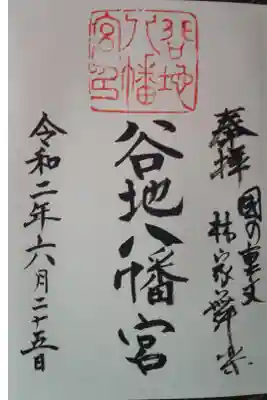 奉拝
国の重文
林家舞楽
谷地八幡宮
谷地
八幡
宮印
令和二年六月二十五日